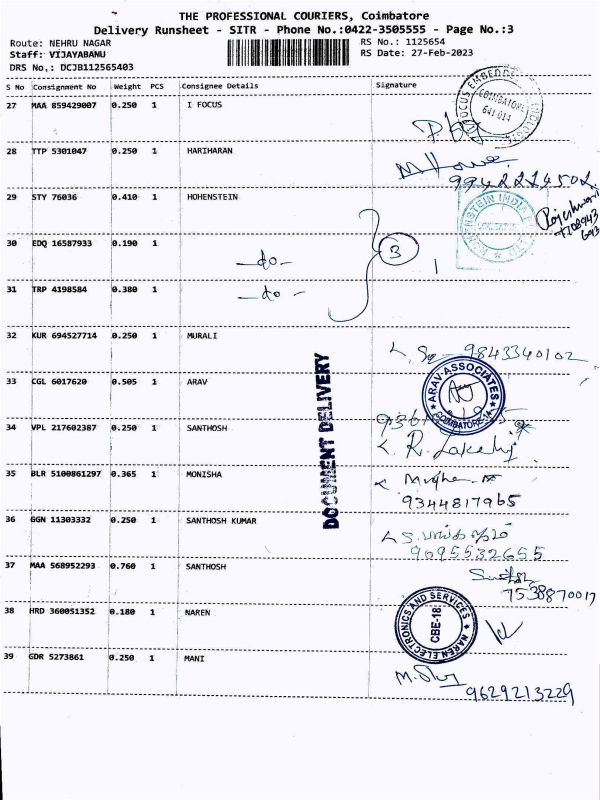 THE PROFESSIONAL COURIERS, Coimbatore
Delivery Runsheet - SITR - Phone No.:0422-3505555 - Page No.:3
Route: NEHRU NAGAR
Staff: VIJAYABANU
DRS No.: DCJB112565403
RS No.: 1125654
RS Date: 27-Feb-2023
S No Consignment No Weight PCS Consignee Details Signature
27 MAA 859429007 0.250 1 I FOCUS
COIMBATORE
641 014
28 TTP 5301047 0.250 1 HARIHARAN
9942214502
29 STY 76036 0.410 1 HOHENSTEIN
HOHENSTEIN INDIA
Rajeshwari
30 EDQ 16587933 0.190 1 -do-
3
31 TRP 4198584 0.380 1 -do-
32 KUR 694527714 0.250 1 MURALI
9843340102
33 CGL 6017620 0.505 1 ARAV
ARAV ASSOCIATES
COIMBATORE-14
34 VPL 217602387 0.250 1 SANTHOSH
35 BLR 5100861297 0.365 1 MONISHA
9344817965
36 GGN 11303332 0.250 1 SANTHOSH KUMAR
9095532655
37 MAA 568952293 0.760 1 SANTHOSH
7538870017
38 HRD 360051352 0.180 1 NAREN
NAREN ELECTRONICS AND SERVICES
CBE-18
39 GDR 5273861 0.250 1 MANI
9629213229
DOCUMENT DELIVERY